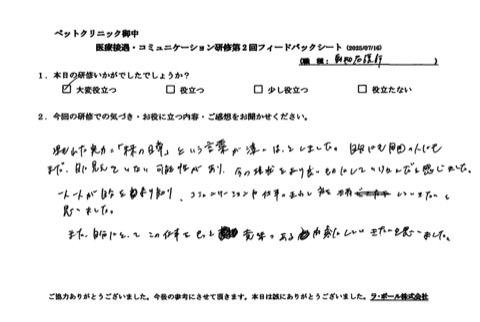 ペットクリニック御中
医療接遇・コミュニケーション研修第2回フィードバックシート (2025/07/16)
(職 種: 動物看護師 )
1. 本日の研修いかがでしたでしょうか?
☑ 大変役立つ □ 役立つ □ 少し役立つ □ 役立たない
2. 今回の研修での気づき・お役に立つ内容・ご感想をお聞かせください。
という言葉が しました。自分にも周囲の人にも
まだ、目に見えていない可能性があり、今の だと感じました。
一人一人が自分を 知り、コミュニケーションや仕事の していきたいと
思いました。
また、自分にとってこの仕事をもっと 意味のある 内容にしていきたいと思いました。
ご協力ありがとうございました。今後の参考にさせて頂きます。本日は誠にありがとうございました。ラ・ポール株式会社